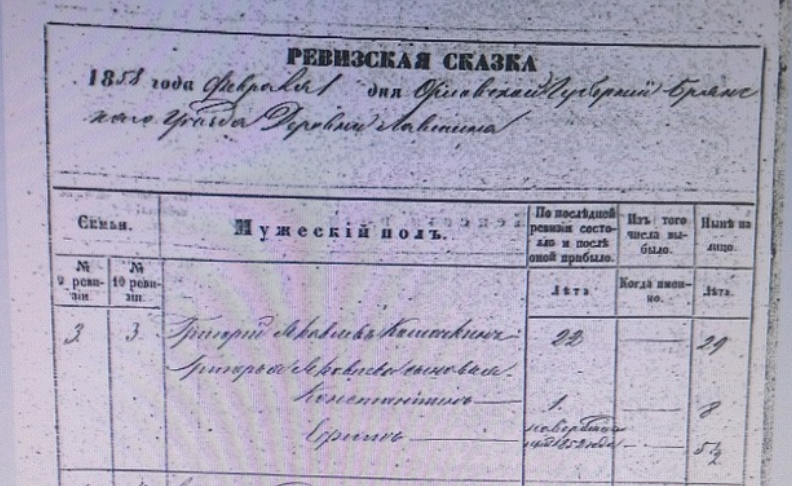 РЕВИЗСКАЯ СКАЗКА
1858 года февраля дня Орловской Губернии Брянс
каго Уезда Деревни
Семьи.
Мужескій полъ.
По послѣдней ревизіи состояло и послѣ оной прибыло.
Изъ того числа выбыло.
Нынѣ на лицо.
№ 9 ревизіи
№ 10 ревизіи.
Лѣта.
Когда именно.
Лѣта.
3. 3. Григорій Яковлевъ 22 29
Григорья Яковлева сыновья
Константинъ 1. 8
Ефимъ 1852 года 5½